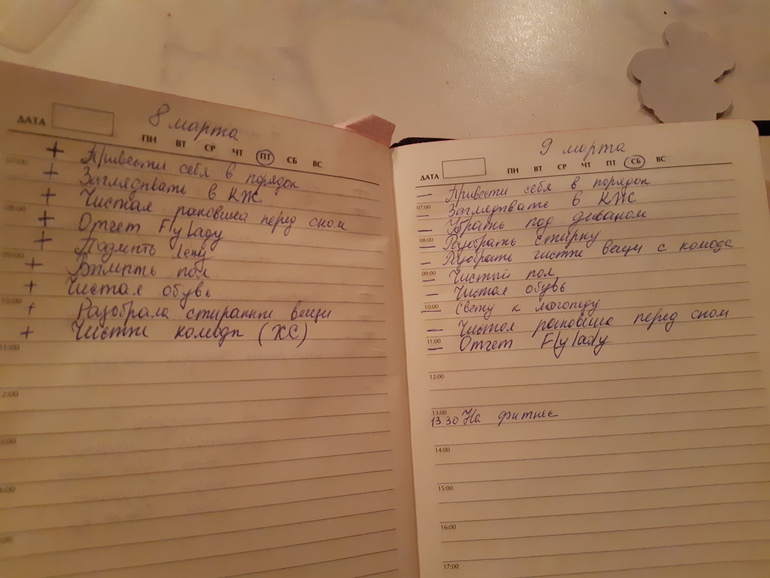 8 марта
ДАТА ПН ВТ СР ЧТ ПТ СБ ВС
+ Привести себя в порядок
+ Заглядывать в КЖ
+ Чистая раковина перед сном
+ Отчет FlyLady
+ Поднять Лену
+ Вымыть пол
+ Чистая обувь
+ Разобрала стиранные вещи
+ Чистые комоды (ХС)
07:00
08:00
09:00
10:00
11:00
12:00
9 марта
ДАТА ПН ВТ СР ЧТ ПТ СБ ВС
— Привести себя в порядок
07:00
— Заглядывать в КЖ
— Убрать под диваном
08:00
— Разобрать стирку
— Разобрать чистые вещи с комода
09:00
— Чистый пол
— Чистая обувь
10:00
Свету к логопеду
— Чистая раковина перед сном
11:00
— Отчет FlyLady
12:00
13:00
13 30 На фитнес
14:00
15:00
16:00
17:00